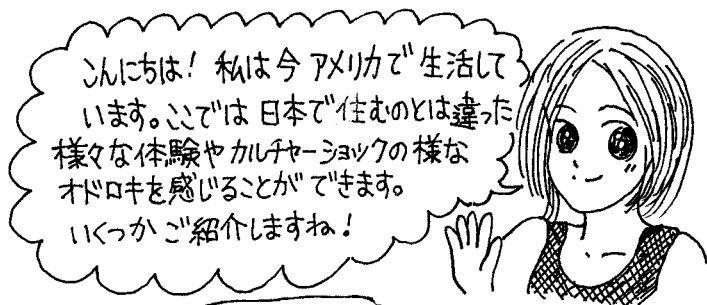 こんにちは！ 私は今 アメリカで 生活して
います。ここでは 日本で住むのとは違った
様々な体験や カルチャーショックの様な
オドロキを感じることができます。
いくつか ご紹介しますね！